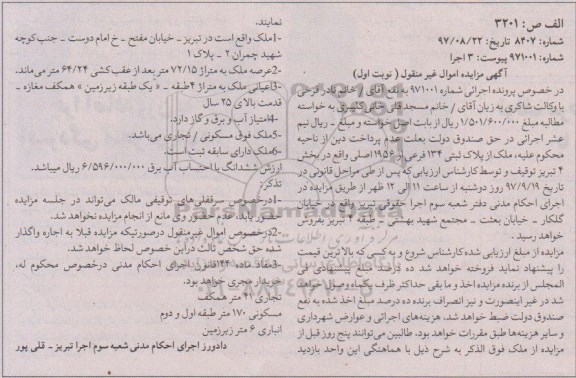 الف ص: ۳۲۰۱
شماره: ۸۴۰۷ تاریخ: ۹۷/۰۸/۲۲
شماره: ۹۷۱۰۰۱ پیوست: ۳ اجرا
آگهی مزایده اموال غیر منقول ( نوبت اول)
در خصوص پرونده اجرائی شماره ۹۷۱۰۰۱ به نفع آقای / خانم نادر فرخی
با وکالت شاکری به زیان آقای / خانم مسجد قارختی کلیبری به خواسته
مطالبه مبلغ ۱/۵۰۱/۶۰۰/۰۰۰ ریال از بابت اصل خواسته و مبلغ - ریال نیم
عشر اجرائی در حق صندوق دولت بعلت عدم پرداخت دین از ناحیه
محکوم علیه، ملک از پلاک ثبتی ۱۳۴ فرعی از ۱۹۵۶ اصلی واقع در بخش
۴ تبریز توقیف و توسط کارشناس ارزیابی که پس از طی مراحل قانونی در
تاریخ ۹۷/۹/۱۹ روز دوشنبه از ساعت ۱۱ الی ۱۲ ظهر از طریق مزایده در
اجرای احکام مدنی دفتر شعبه سوم اجرا حقوقی تبریز واقع در خیابان
گلکار - خیابان بعثت - مجتمع شهید بهشتی - طبقه ۴ تبریز بفروش
خواهد رسید.
مزایده از مبلغ ارزیابی شده کارشناس شروع و به کسی که بالاترین قیمت
را پیشنهاد نماید فروخته خواهد شد ده درصد مبلغ پیشنهادی فی
المجلس از برنده مزایده اخذ و ما بقی حداکثر ظرف یکماه وصول خواهد
شد در غیر اینصورت و نیز انصراف برنده ده درصد مبلغ اخذ شده به نفع
صندوق دولت ضبط خواهد شد. هزینه‌های اجرائی و عوارض شهرداری
و سایر هزینه‌ها طبق مقررات خواهد بود. طالبین می‌توانند پنج روز قبل از
مزایده از ملک فوق الذکر به شرح ذیل با هماهنگی این واحد بازدید
نمایند.
1-ملک واقع است در تبریز - خیابان مفتح - خ امام دوست - جنب کوچه
شهید چمران ۲ - پلاک ۱
2-عرصه ملک به متراژ ۷۲/۱۵ متر بعد از عقب کشی ۶۴/۲۴ متر می‌ماند.
3-اعیانی ملک به متراژ ۴ طبقه - « یک طبقه زیرزمین » همکف مغازه -
قدمت بالای ۲۵ سال
4-امتیاز آب و برق و گاز دارد.
5-ملک فوق مسکونی / تجاری می‌باشد.
6-ملک دارای سابقه ثبت است.
ارزش ششدانگ با احتساب آب برق ۶/۵۹۶/۰۰۰/۰۰۰ ریال میباشد.
تذکر:
1-درخصوص سرقفلی‌های توقیفی مالک می‌تواند در جلسه مزایده
حضور یابد. عدم حضور وی مانع از انجام مزایده نخواهد شد.
2-درخصوص اموال غیر منقول درصورتیکه مزایده قبلا به اجاره واگذار
شده حق شخص ثالث در این خصوص لحاظ خواهد شد.
3-مفاد ماده ۱۴۴ قانون اجرای احکام مدنی درخصوص محکوم له،
خریدار مجری خواهد بود.
تجاری ۴۱ متر همکف
مسکونی ۱۷۰ متر طبقه اول و دوم
انباری ۶ متر زیرزمین
دادورز اجرای احکام مدنی شعبه سوم اجرا تبریز - قلی پور